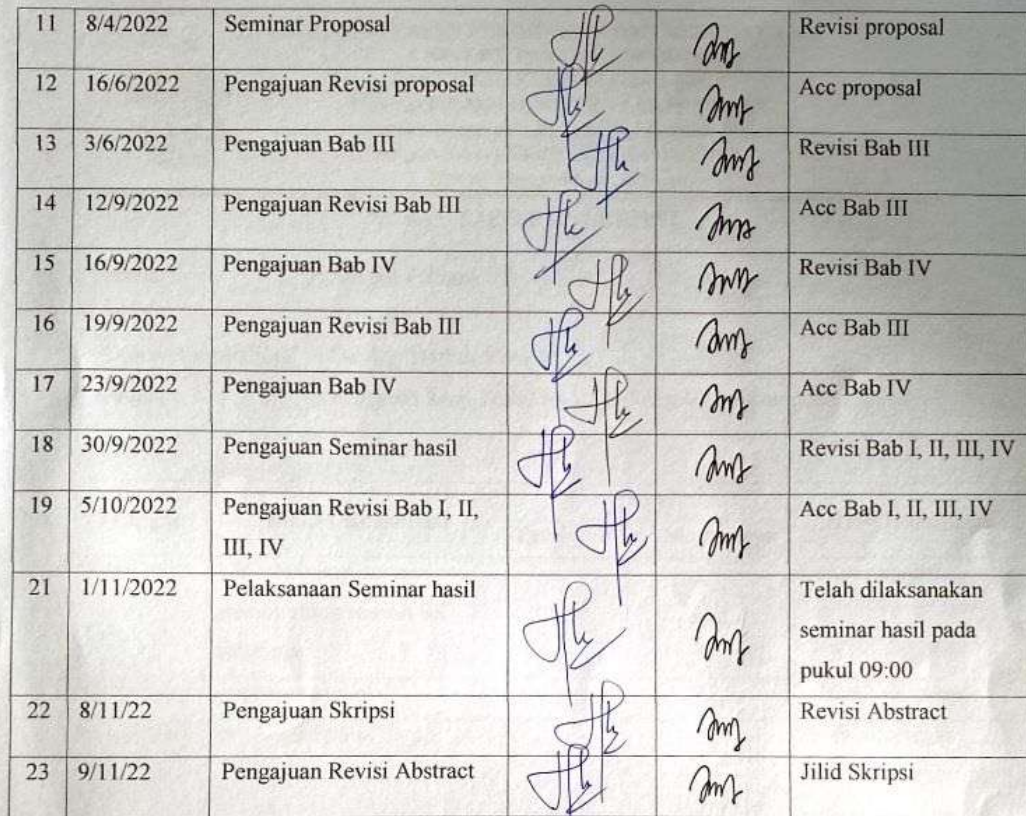 11 8/4/2022 Seminar Proposal Revisi proposal
12 16/6/2022 Pengajuan Revisi proposal Acc proposal
13 3/6/2022 Pengajuan Bab III Revisi Bab III
14 12/9/2022 Pengajuan Revisi Bab III Acc Bab III
15 16/9/2022 Pengajuan Bab IV Revisi Bab IV
16 19/9/2022 Pengajuan Revisi Bab III Acc Bab III
17 23/9/2022 Pengajuan Bab IV Acc Bab IV
18 30/9/2022 Pengajuan Seminar hasil Revisi Bab I, II, III, IV
19 5/10/2022 Pengajuan Revisi Bab I, II, Acc Bab I, II, III, IV
III, IV
21 1/11/2022 Pelaksanaan Seminar hasil Telah dilaksanakan
seminar hasil pada
pukul 09:00
22 8/11/22 Pengajuan Skripsi Revisi Abstract
23 9/11/22 Pengajuan Revisi Abstract Jilid Skripsi